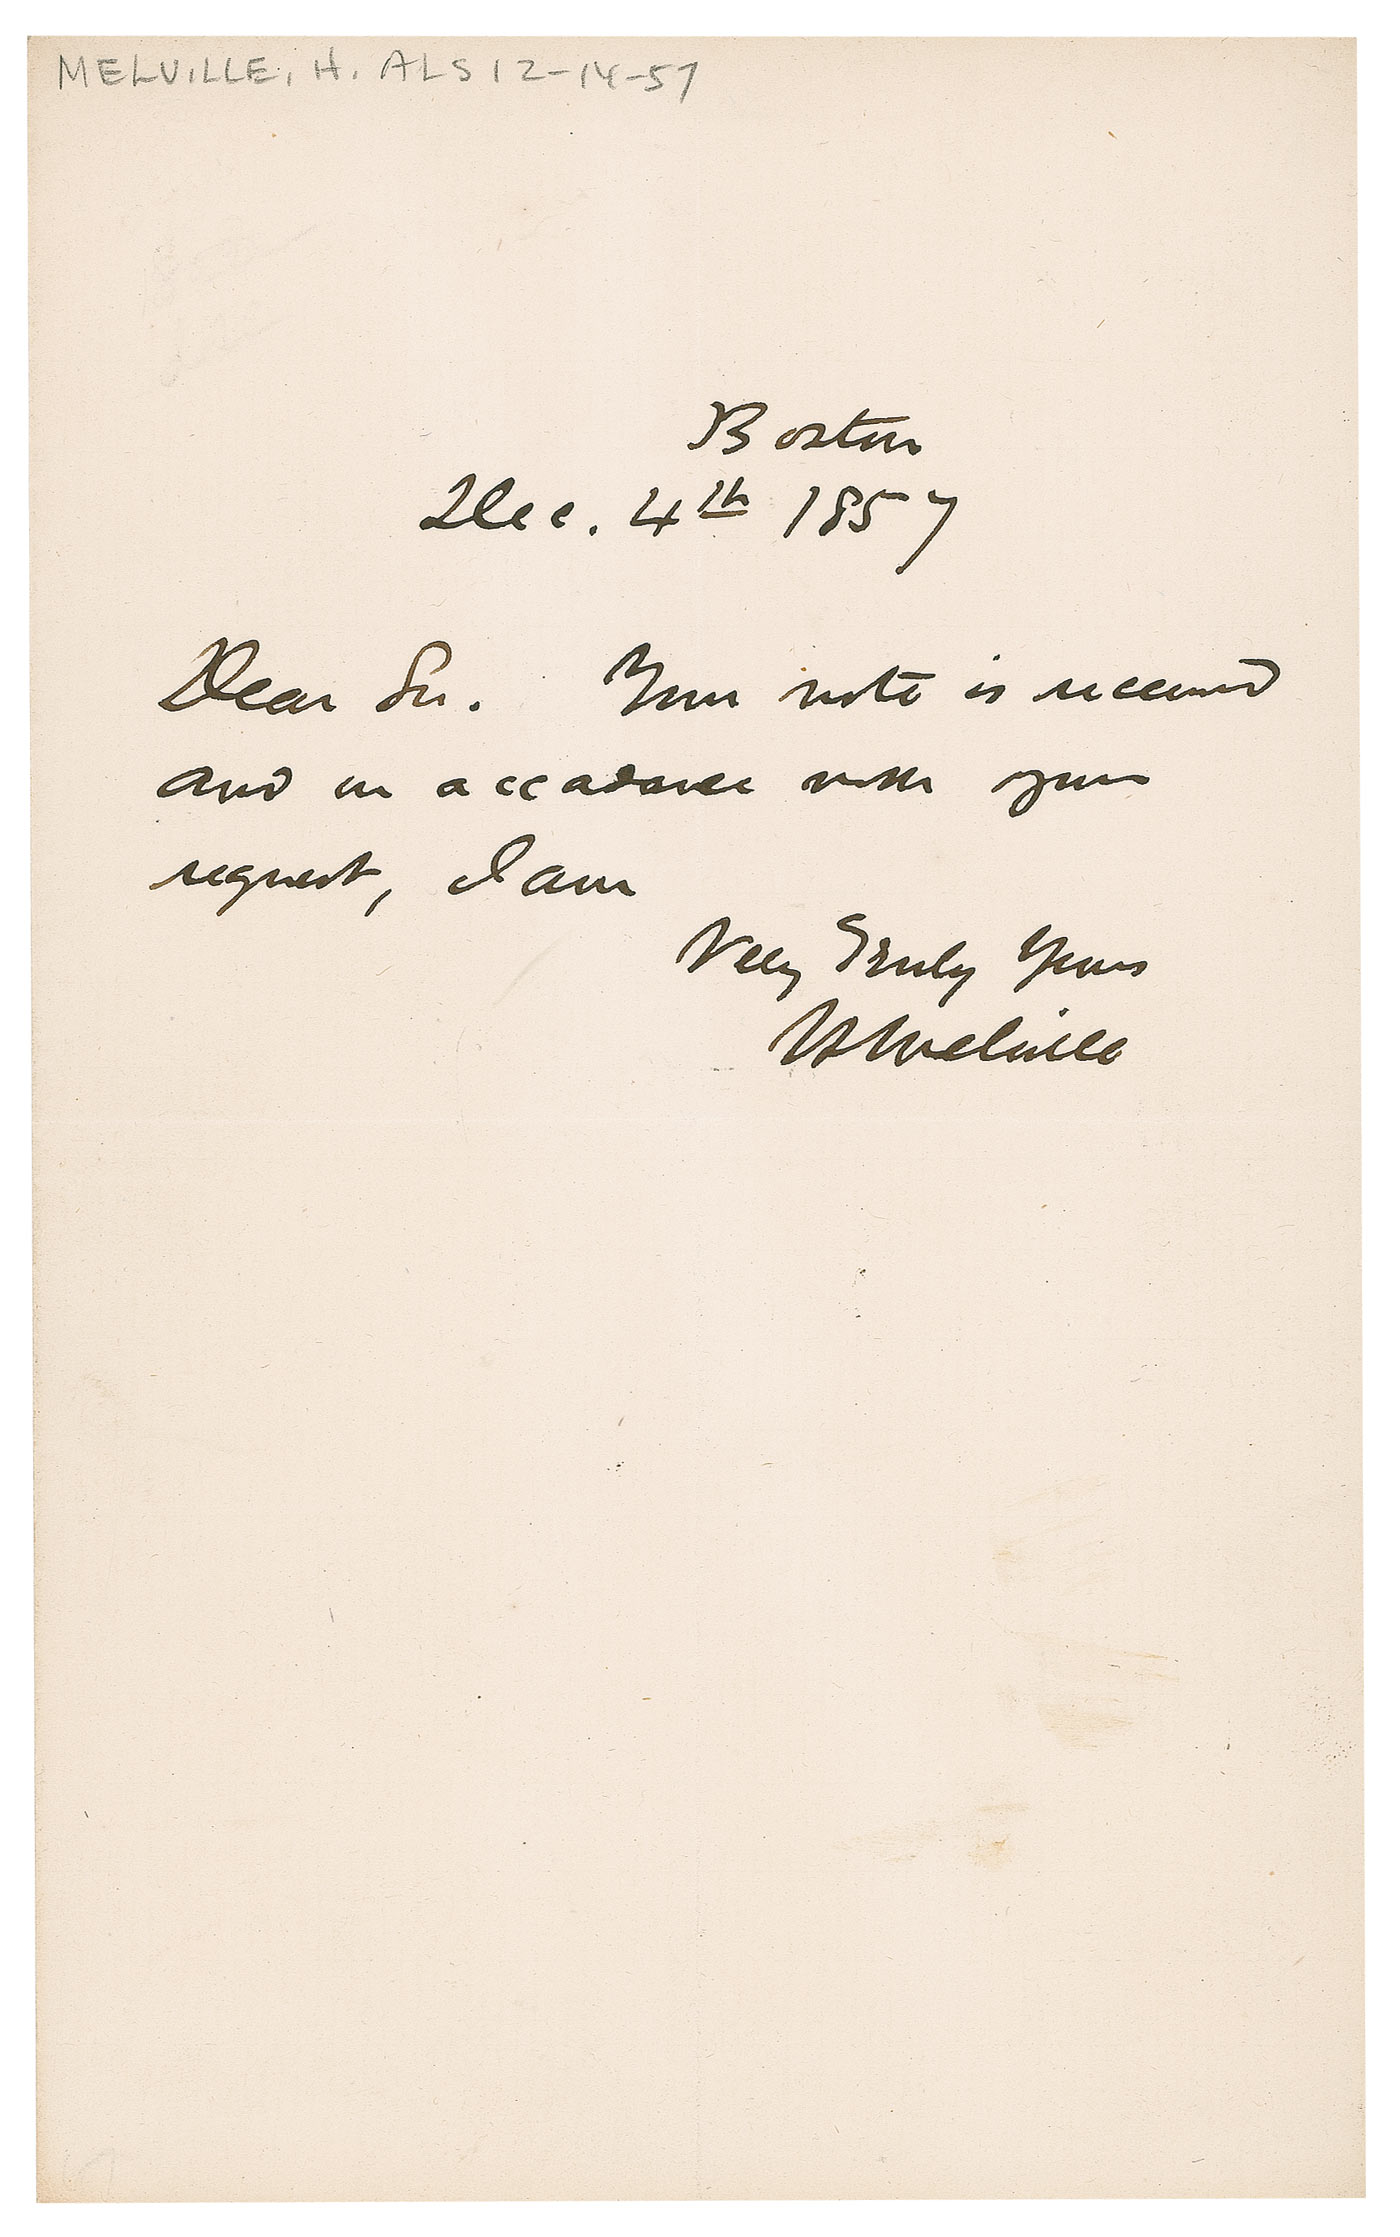 MELVILLE, H. ALS 12-14-57
Boston
Dec. 4th 1857
Dear Sir. Your note is received
and in accadance with your
request, I am
Very Truly Yours
H Melville